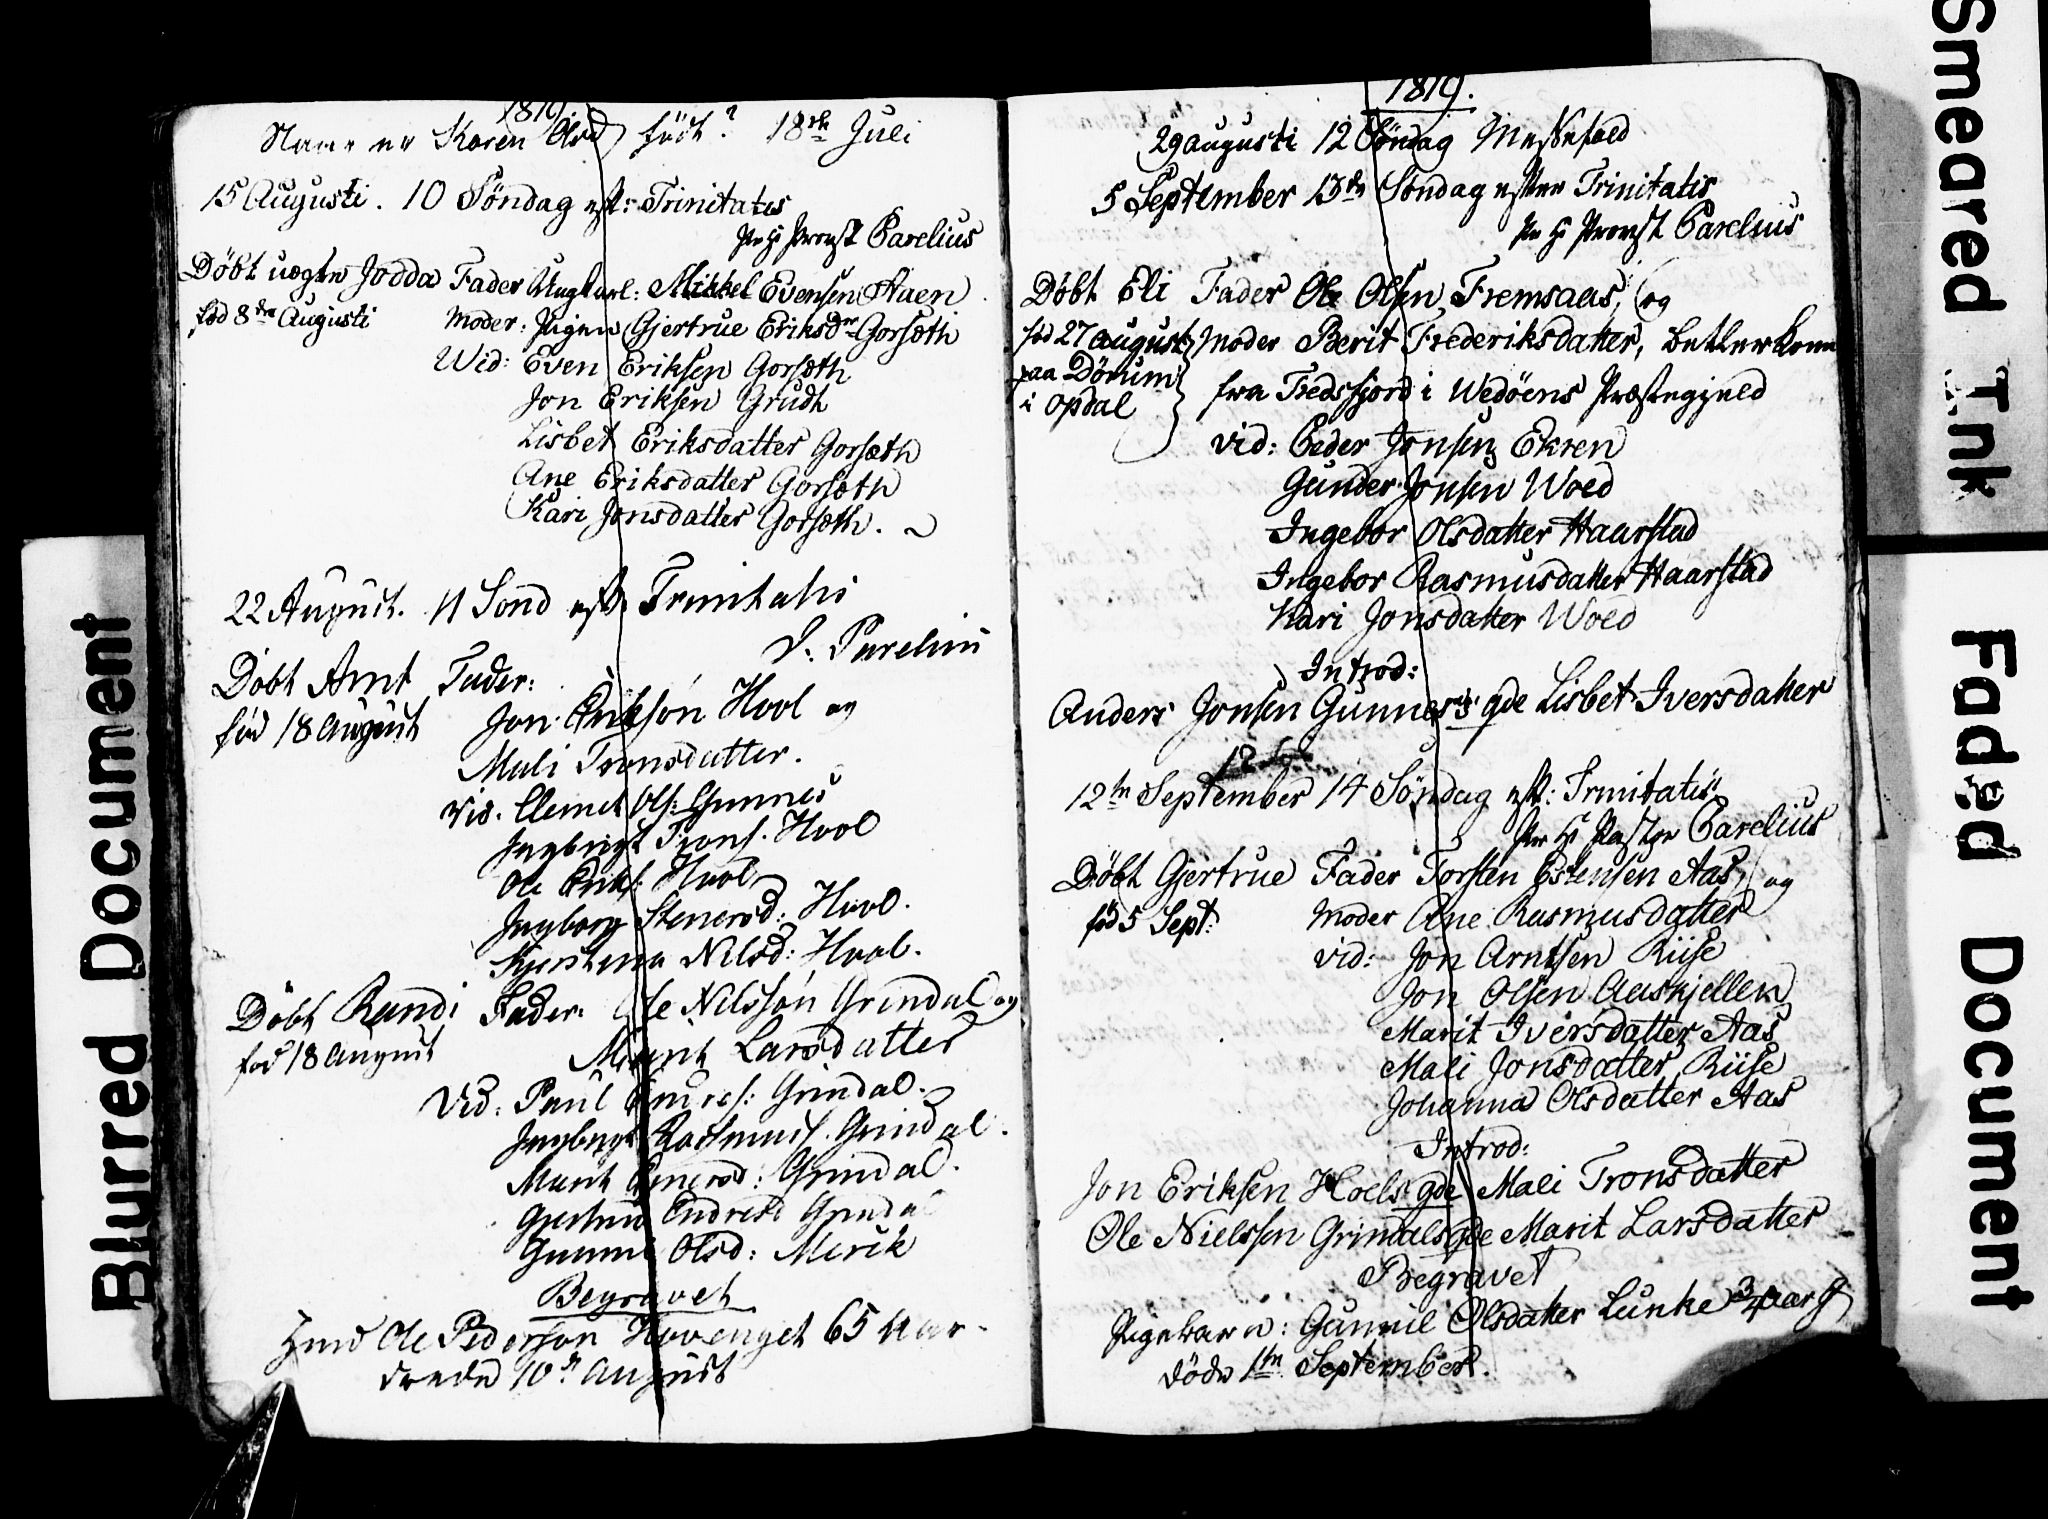 1819
Karen født? 18de Juli
15 Augusti. 10 Söndag eft: Trinitatis
Pr Hr Provst Parelius
Döbt uægte Jodda Fader Ungkarl: Mikkel Evensen Aaen
fød 8de Augusti Moder: Pigen Gjertrue Eriksdr Gorsæth
Wid: Even Eriksen Gorsæth
Jon Eriksen Grudt
Lisbet Eriksdatter Gorsæth
Ane Eriksdatter Gorsæth
Kari Jonsdatter Gorsæth.
22 August. 11 Sönd eft Trinitatis
P. Parelius
Döbt Arnt Fader:
fød 18 August Jon Erikson Hool og
Mali Tronsdatter.
Vid. Clemet Ols: Gunnes
Ingbrigt Trons. Hool
Ole Eriks: Hool
Ingborg Stenersd: Hool.
Kjerstena Nilsd: Hool.
Döbt Randi Fader: Ole Nilsson Grindal og
fød 18 August Marit Larsdatter
Vid: Paul Endres: Grindal.
Ingbrigt Rasmus. Grindal.
Marit Einersd: Grindal.
Gjertrud Endresd Grindal
Gunnil Olsd: Merik
Begravet
Ole Pederson Hovenget 65 aar
døde 10de August
1819.
29 Augusti 12 Söndag Messefald
5 September 13de Söndag efter Trinitatis
Pr Hr Provst Parelius
Döbt Eli Fader Ole Olsen Fremsaas, og
fød 27 August Moder Berit Frederiksdatter, betlerkone
paa Dörum fra Fredsfjord i Wedöens Præstegjeld
i Opdal
Vid: Peder Jonsen Ekren
Gunder Jonsen Woed
Ingebor Olsdatter Haarstad
Ingebor Rasmusdatter Haarstad
Kari Jonsdatter Woed
Introd:
Anders Jonsen Gunnes's gde Lisbet Iversdatter
12te September 14 Söndag eft: Trinitatis
Pr Hr Pastor Parelius
Döbt Gjertrue Fader Torsten Estensen Aas, og
fød 5 Sept: Moder Ane Rasmusdatter
Vid: Jon Arntsen Riise
Jon Olsen Aaskjellen
Marit Iversdatter Aas
Mali Jonsdatter Riise
Johanna Olsdatter Aas
Introd:
Jon Eriksen Hoels gde Mali Tronsdatter
Ole Nielssen Grindals gde Marit Larsdatter
Begravet
Pigebarn: Gunnil Olsdatter Lunke 3/4 aar g
døde 1te September.
Blurred Document
Smeared Ink
Faded Document